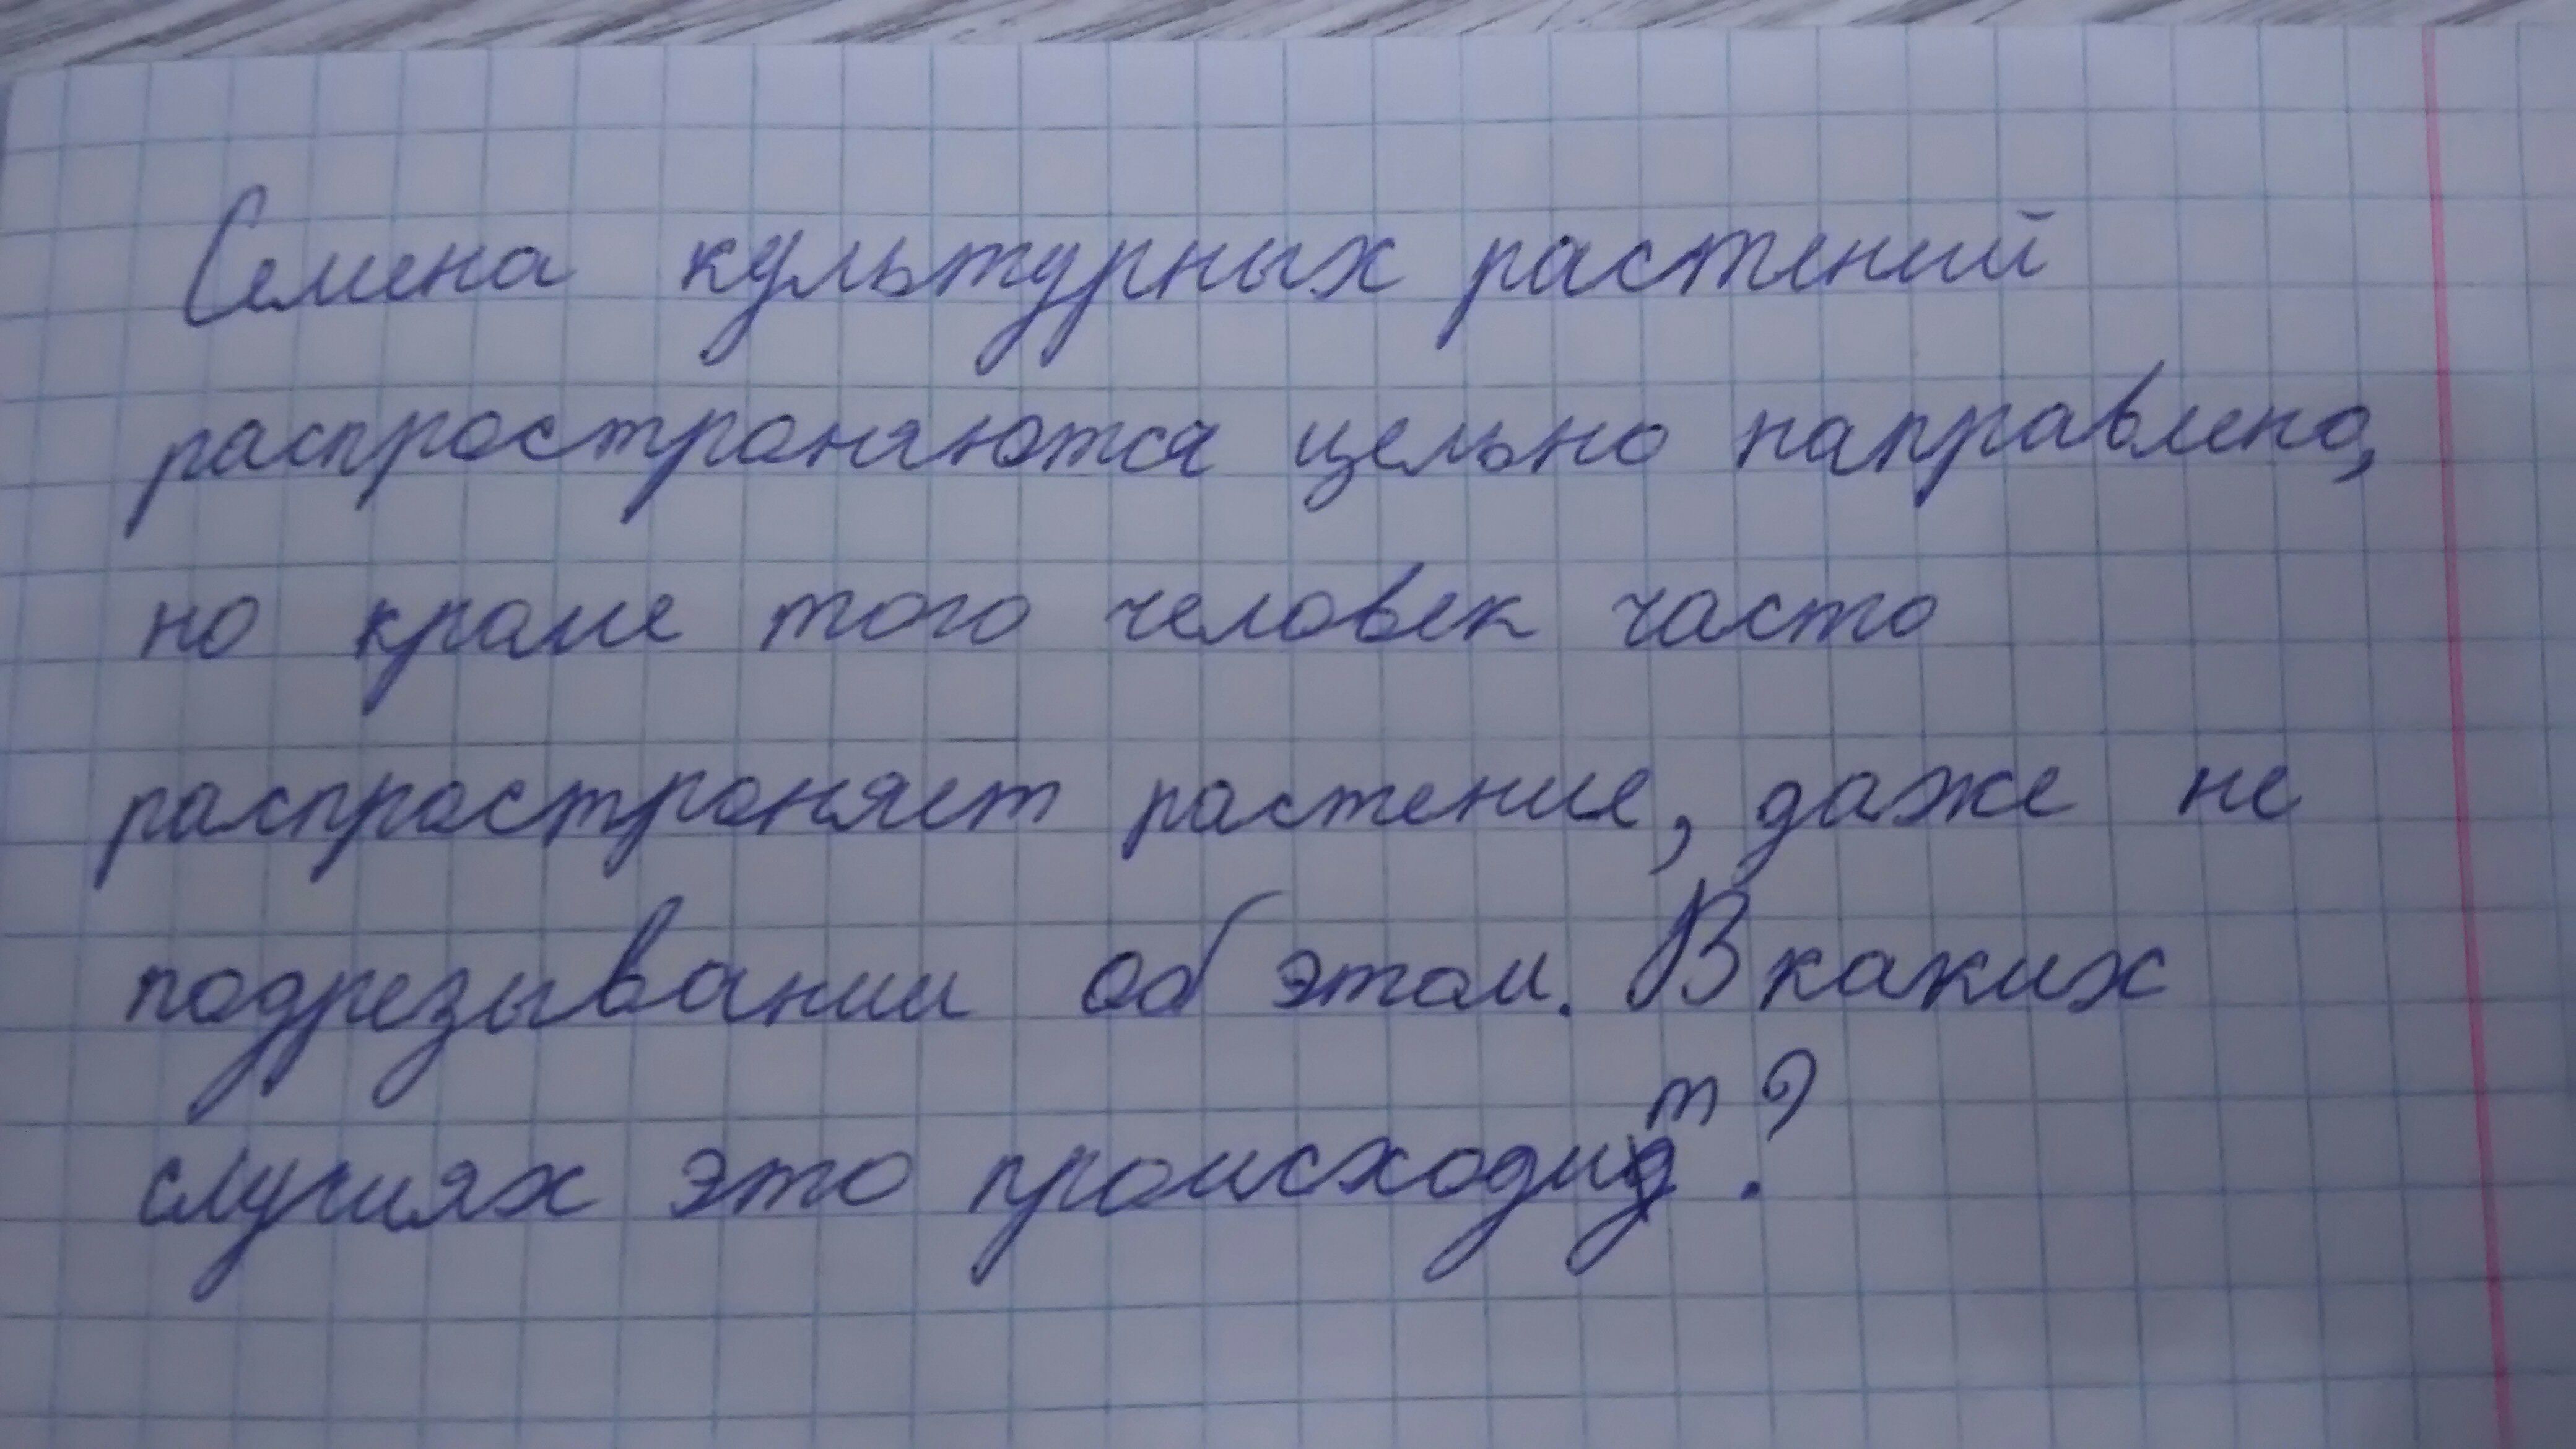 Семена культурных растений
распростроняются цельно направлено,
но кроме того человек часто
распростроняет растение, даже не
подрезывании об этом. В каких
случиях это происходит?